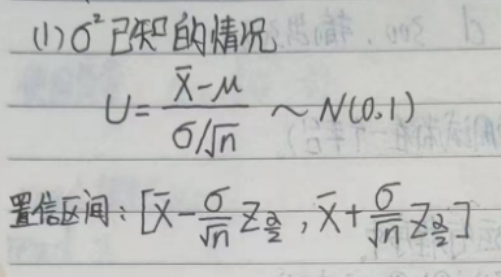 (1) σ²已知的情况
U = (X̄-μ)/(σ/√n) ~ N(0,1)
置信区间：[X̄-σ/√n Z_{α/2}, X̄+σ/√n Z_{α/2}]